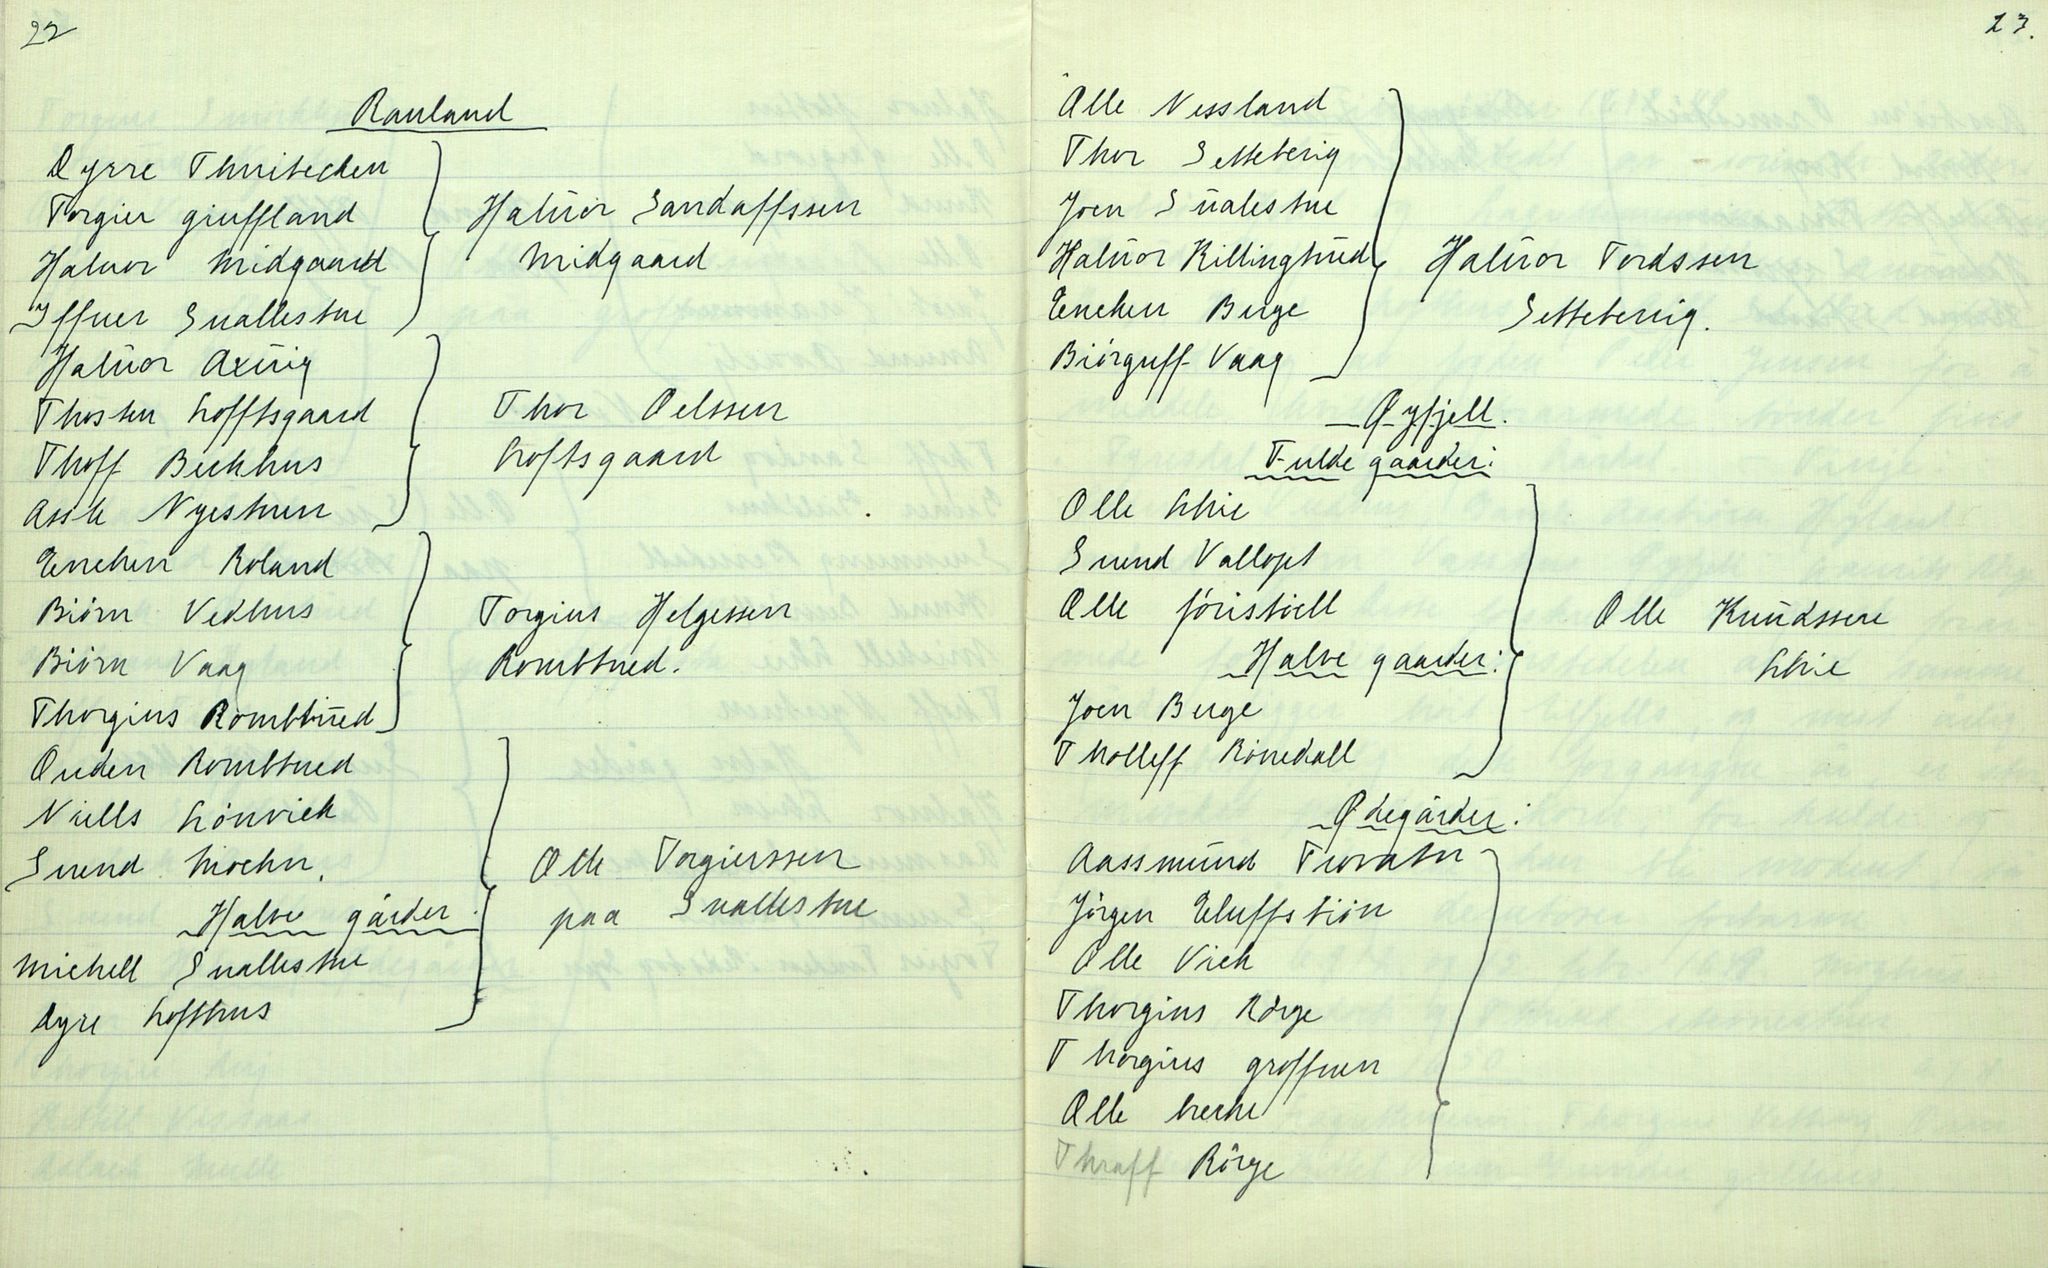 22
Rauland
Dyrre Thuitecken
Torgier giuffland
Haluor Midgaard
Iffuer Suallestue
Haluor Sandaffssen
Midgaard
Halŭor Axŭig
Thosten Lofftsgaard
Thoff Beckhus
Assle Nyestuen
Thor Oelssen
Loftsgaard
Eneken Roland
Biørn Vedhus
Biørn Vaag
Thorgius Rombtŭed
Torgius Helgessen
Rombtued.
Ouden Rombtued
Niells Lønvick
Suend Moehn.
Halve gårder.
Michell Suallestue
Dyre Lofthus
Olle Torgierssen
paa Suallestue
23.
Olle Nessland
Thor Setteberig
Joen Sŭalestue
Halŭor Killingtŭed
Eneken Berge
Biörguff Vaag
Halŭor Tordssen
Setteberig.
Øyfjell.
Fulde gaarder:
Olle Lhie
Suend Vallopt
Olle föristöell
Halve gaarder:
Joen Berge
Tholleff Rönedall
Olle Knŭdssene
Lhie
Ødegårder:
Aassmŭnd Trovatn
Jörgen Eluffstiön
Olle Vick
Thorgius Rörge
Thorgius groffuen
Olle
Thraff Rörge